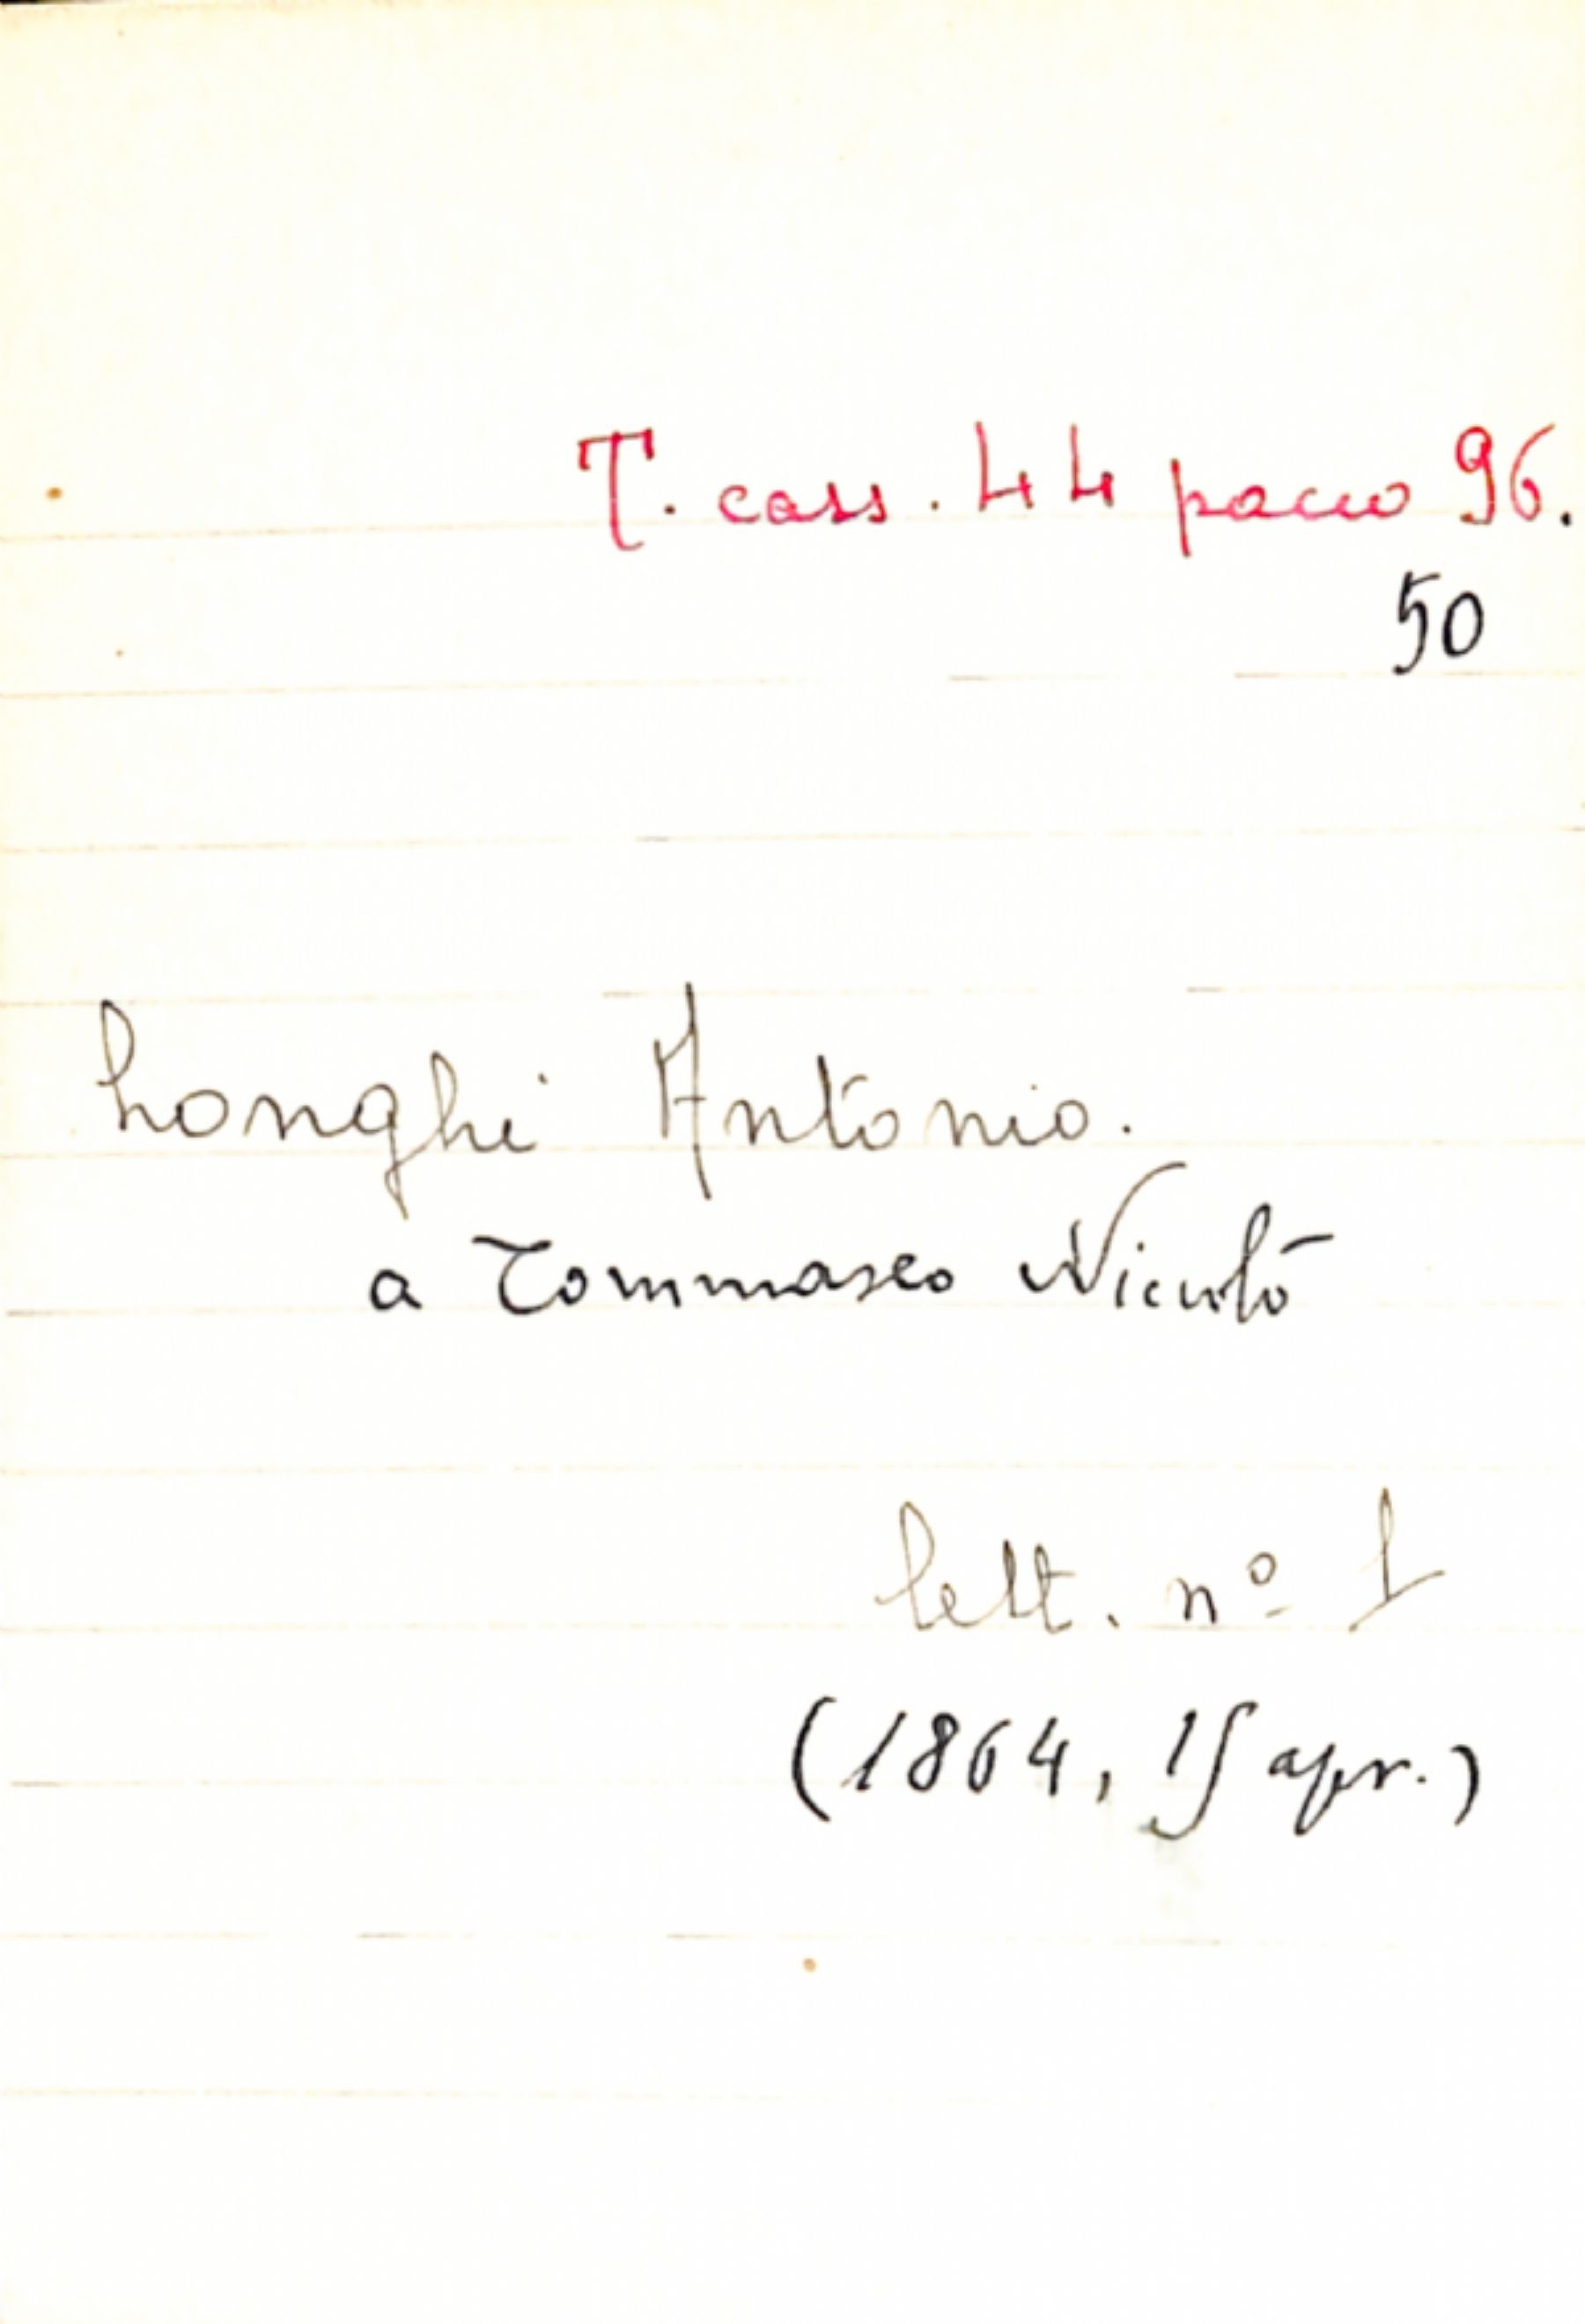 T. cass. 44 pacco 96.
50
Longhi Antonio.
a Tommaseo Niccolò
lett. nº 1
(1864, 15 apr.)